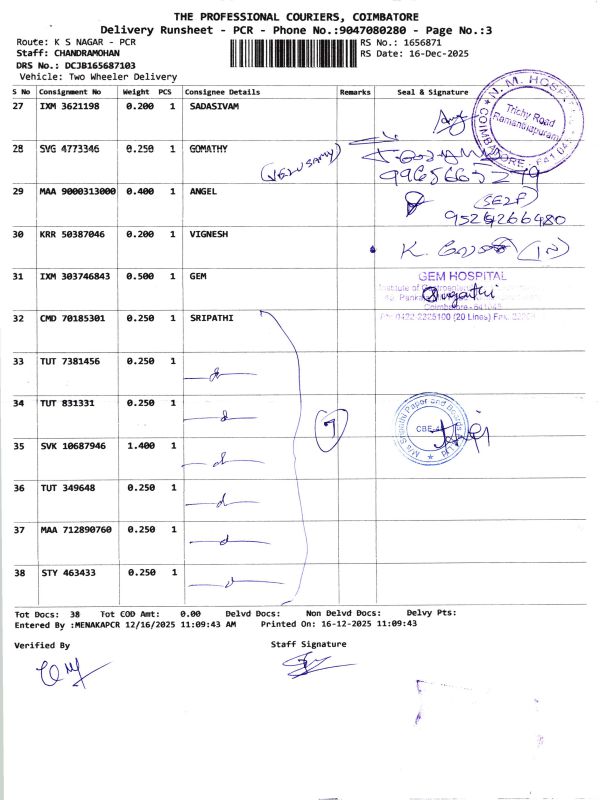 THE PROFESSIONAL COURIERS, COIMBATORE
Delivery Runsheet - PCR - Phone No.:9047080280 - Page No.:3
Route: K S NAGAR - PCR
RS No.: 1656871
Staff: CHANDRAMOHAN
RS Date: 16-Dec-2025
DRS No.: DCJB165687103
Vehicle: Two Wheeler Delivery
S No Consignment No Weight PCS Consignee Details Remarks Seal & Signature
27 IXM 3621198 0.200 1 SADASIVAM
N. M. HOSPITAL
Trichy Road
Ramanathapuram
COIMBATORE - 641 045
28 SVG 4773346 0.250 1 GOMATHY
(VELUSAMY)
29 MAA 9000313000 0.400 1 ANGEL
(SELF)
9526266480
30 KRR 50387046 0.200 1 VIGNESH
31 IXM 303746843 0.500 1 GEM
GEM HOSPITAL
Institute of
Coimbatore - 641045
0422-2225100 (20 Lines) Fax:
32 CMD 70185301 0.250 1 SRIPATHI
33 TUT 7381456 0.250 1
34 TUT 831331 0.250 1
7
M/s Sripathi Paper and Boards
CBE-45
35 SVK 10687946 1.400 1
36 TUT 349648 0.250 1
37 MAA 712890760 0.250 1
38 STY 463433 0.250 1
Tot Docs: 38 Tot COD Amt: 0.00 Delvd Docs: Non Delvd Docs: Delvy Pts:
Entered By :MENAKAPCR 12/16/2025 11:09:43 AM Printed On: 16-12-2025 11:09:43
Verified By
Staff Signature